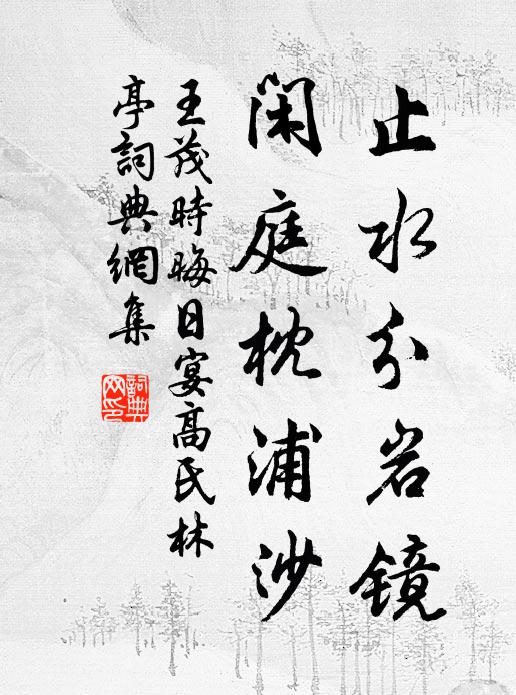 止水分岩镜
闲庭枕浦沙
王茂時晦日宴高氏林
亭詞典網集
詞典
网印